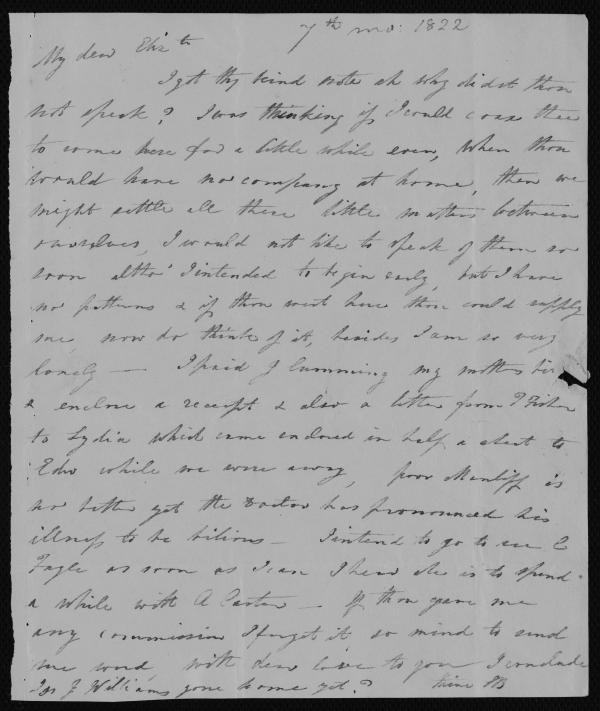 7th mo: 1822
My dear Elizth
I got thy kind note ah why didst thou
not speak? I was thinking if I could coax thee
to come here for a little while even, when thou
would have no company at home, then we
might settle all these little matters between
ourselves, I would not like to speak of them so
soon altho' I intended to begin early, but I have
no patterns & if thou wert here thou could supply
me, now do think of it, besides I am so very
lonely — I paid J Cumming my mothers
& enclose a receipt & also a letter from Fisher
to Lydia which came enclosed in half a sheet to
Edw while we were away, poor is
no better yet the Doctor has pronounced his
illness to be bilious — I intend to go to see C
Fagle as soon as I can I hear she is to spend
a while with A Carter — If thou gave me
any commission I forget it, so mind to send
me word, with dear love to you I conclude
Is J Williams gone home yet? thine